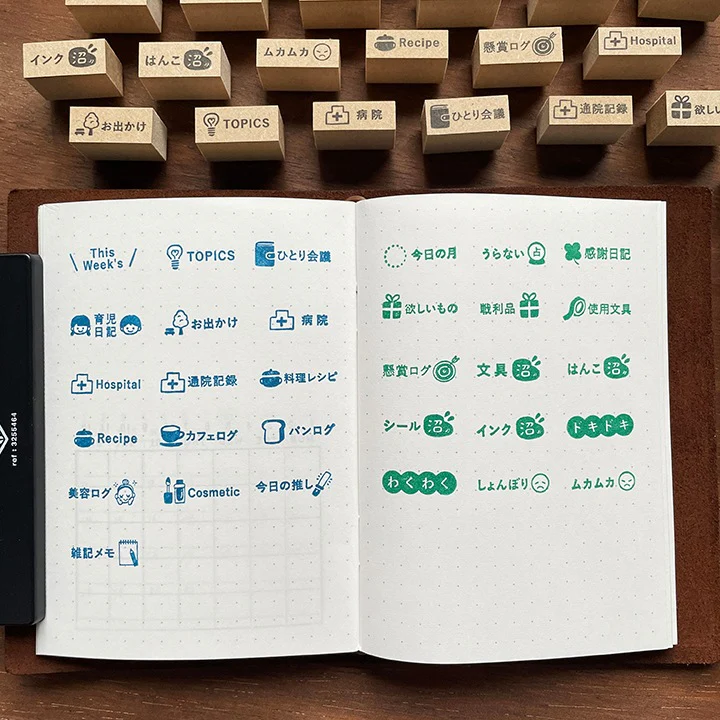 インク沼
はんこ沼
ムカムカ
Recipe
懸賞ログ
Hospital
お出かけ
TOPICS
病院
ひとり会議
通院記録
欲しい
This
Week's
TOPICS
ひとり会議
育児
日記
お出かけ
病院
Hospital
通院記録
料理レシピ
Recipe
カフェログ
パンログ
美容ログ
Cosmetic
今日の推し
雑記メモ
今日の月
うらない占
感謝日記
欲しいもの
戦利品
使用文具
懸賞ログ
文具沼
はんこ沼
シール沼
インク沼
ドキドキ
わくわく
しょんぼり
ムカムカ
ref : 3255464